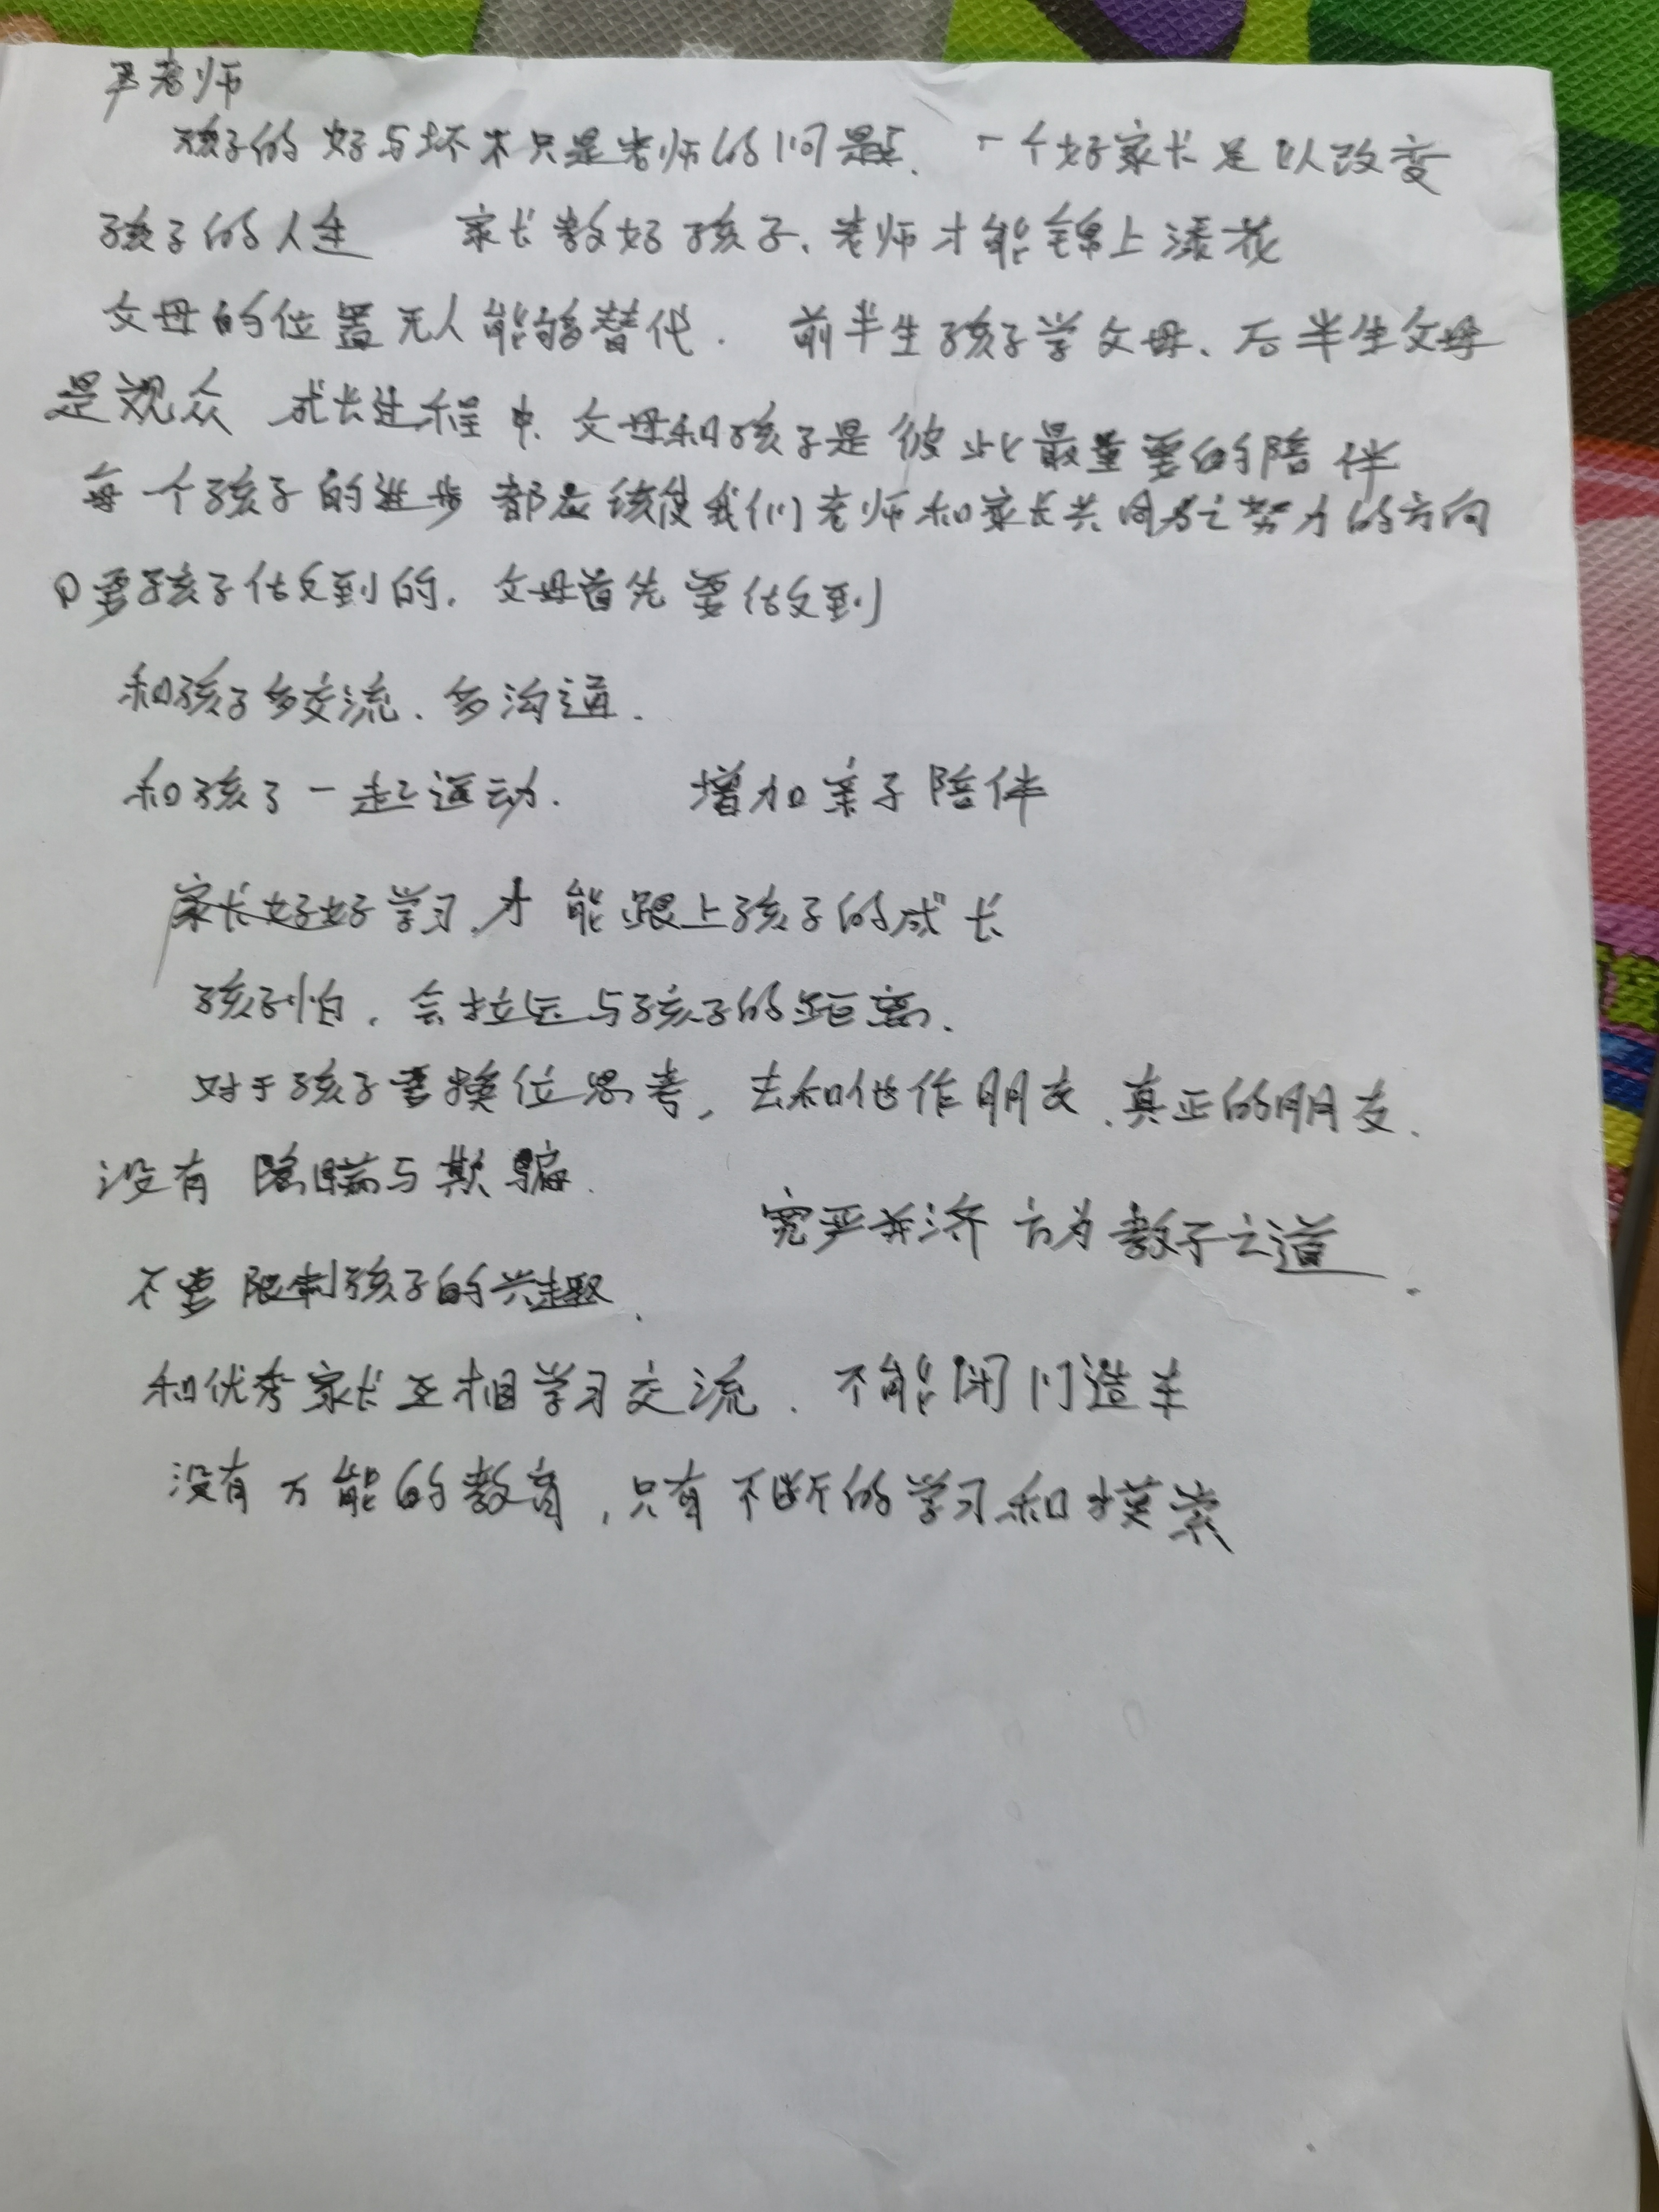 老师
孩子的好与坏不只是老师的问题、一个好家长足以改变
孩子的人生 家长教好孩子、老师才能锦上添花
父母的位置无人能够替代. 前半生孩子学父母、后半生父母
是观众 成长过程中、父母和孩子是彼此最重要的陪伴
每一个孩子的进步都应该使我们老师和家长共同为之努力的方向
要孩子做到的, 父母首先要做到
和孩子多交流、多沟通.
和孩子一起运动. 增加亲子陪伴
家长好好学习、才能跟上孩子的成长
孩子怕, 会拉远与孩子的距离.
对于孩子要换位思考, 去和他作朋友、真正的朋友.
没有隐瞒与欺骗.
宽严并济方为教子之道.
不要限制孩子的兴趣.
和优秀家长互相学习交流. 不能闭门造车
没有万能的教育, 只有不断的学习和摸索